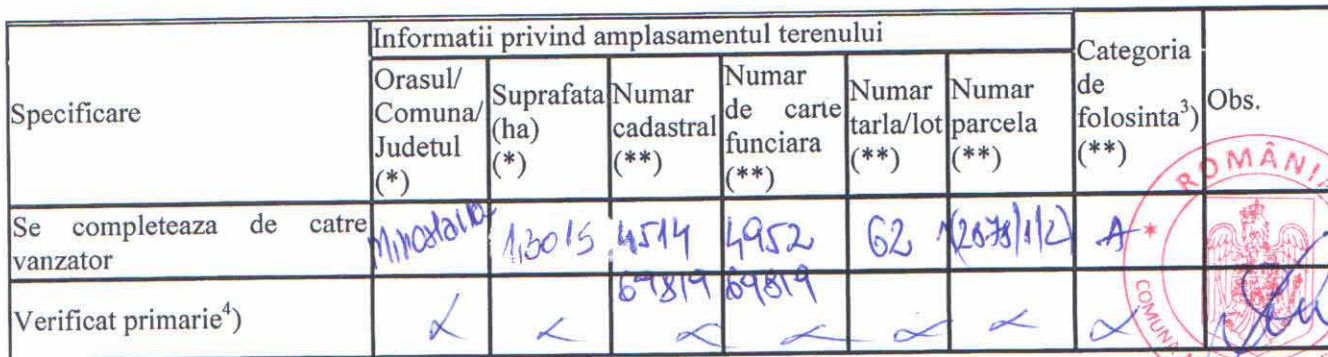 Informatii privind amplasamentul terenului
Specificare
Orasul/
Comuna/
Judetul
(*)
Suprafata
(ha)
(*)
Numar
cadastral
(**)
Numar
de carte
funciara
(**)
Numar
tarla/lot
(**)
Numar
parcela
(**)
Categoria
de
folosinta³)
(**)
Obs.
Se completeaza de catre
vanzator
Miroslava
1,3015
4514
4952
62
A
69819
69819
Verificat primarie⁴)
ROMÂNIA
COMUNA